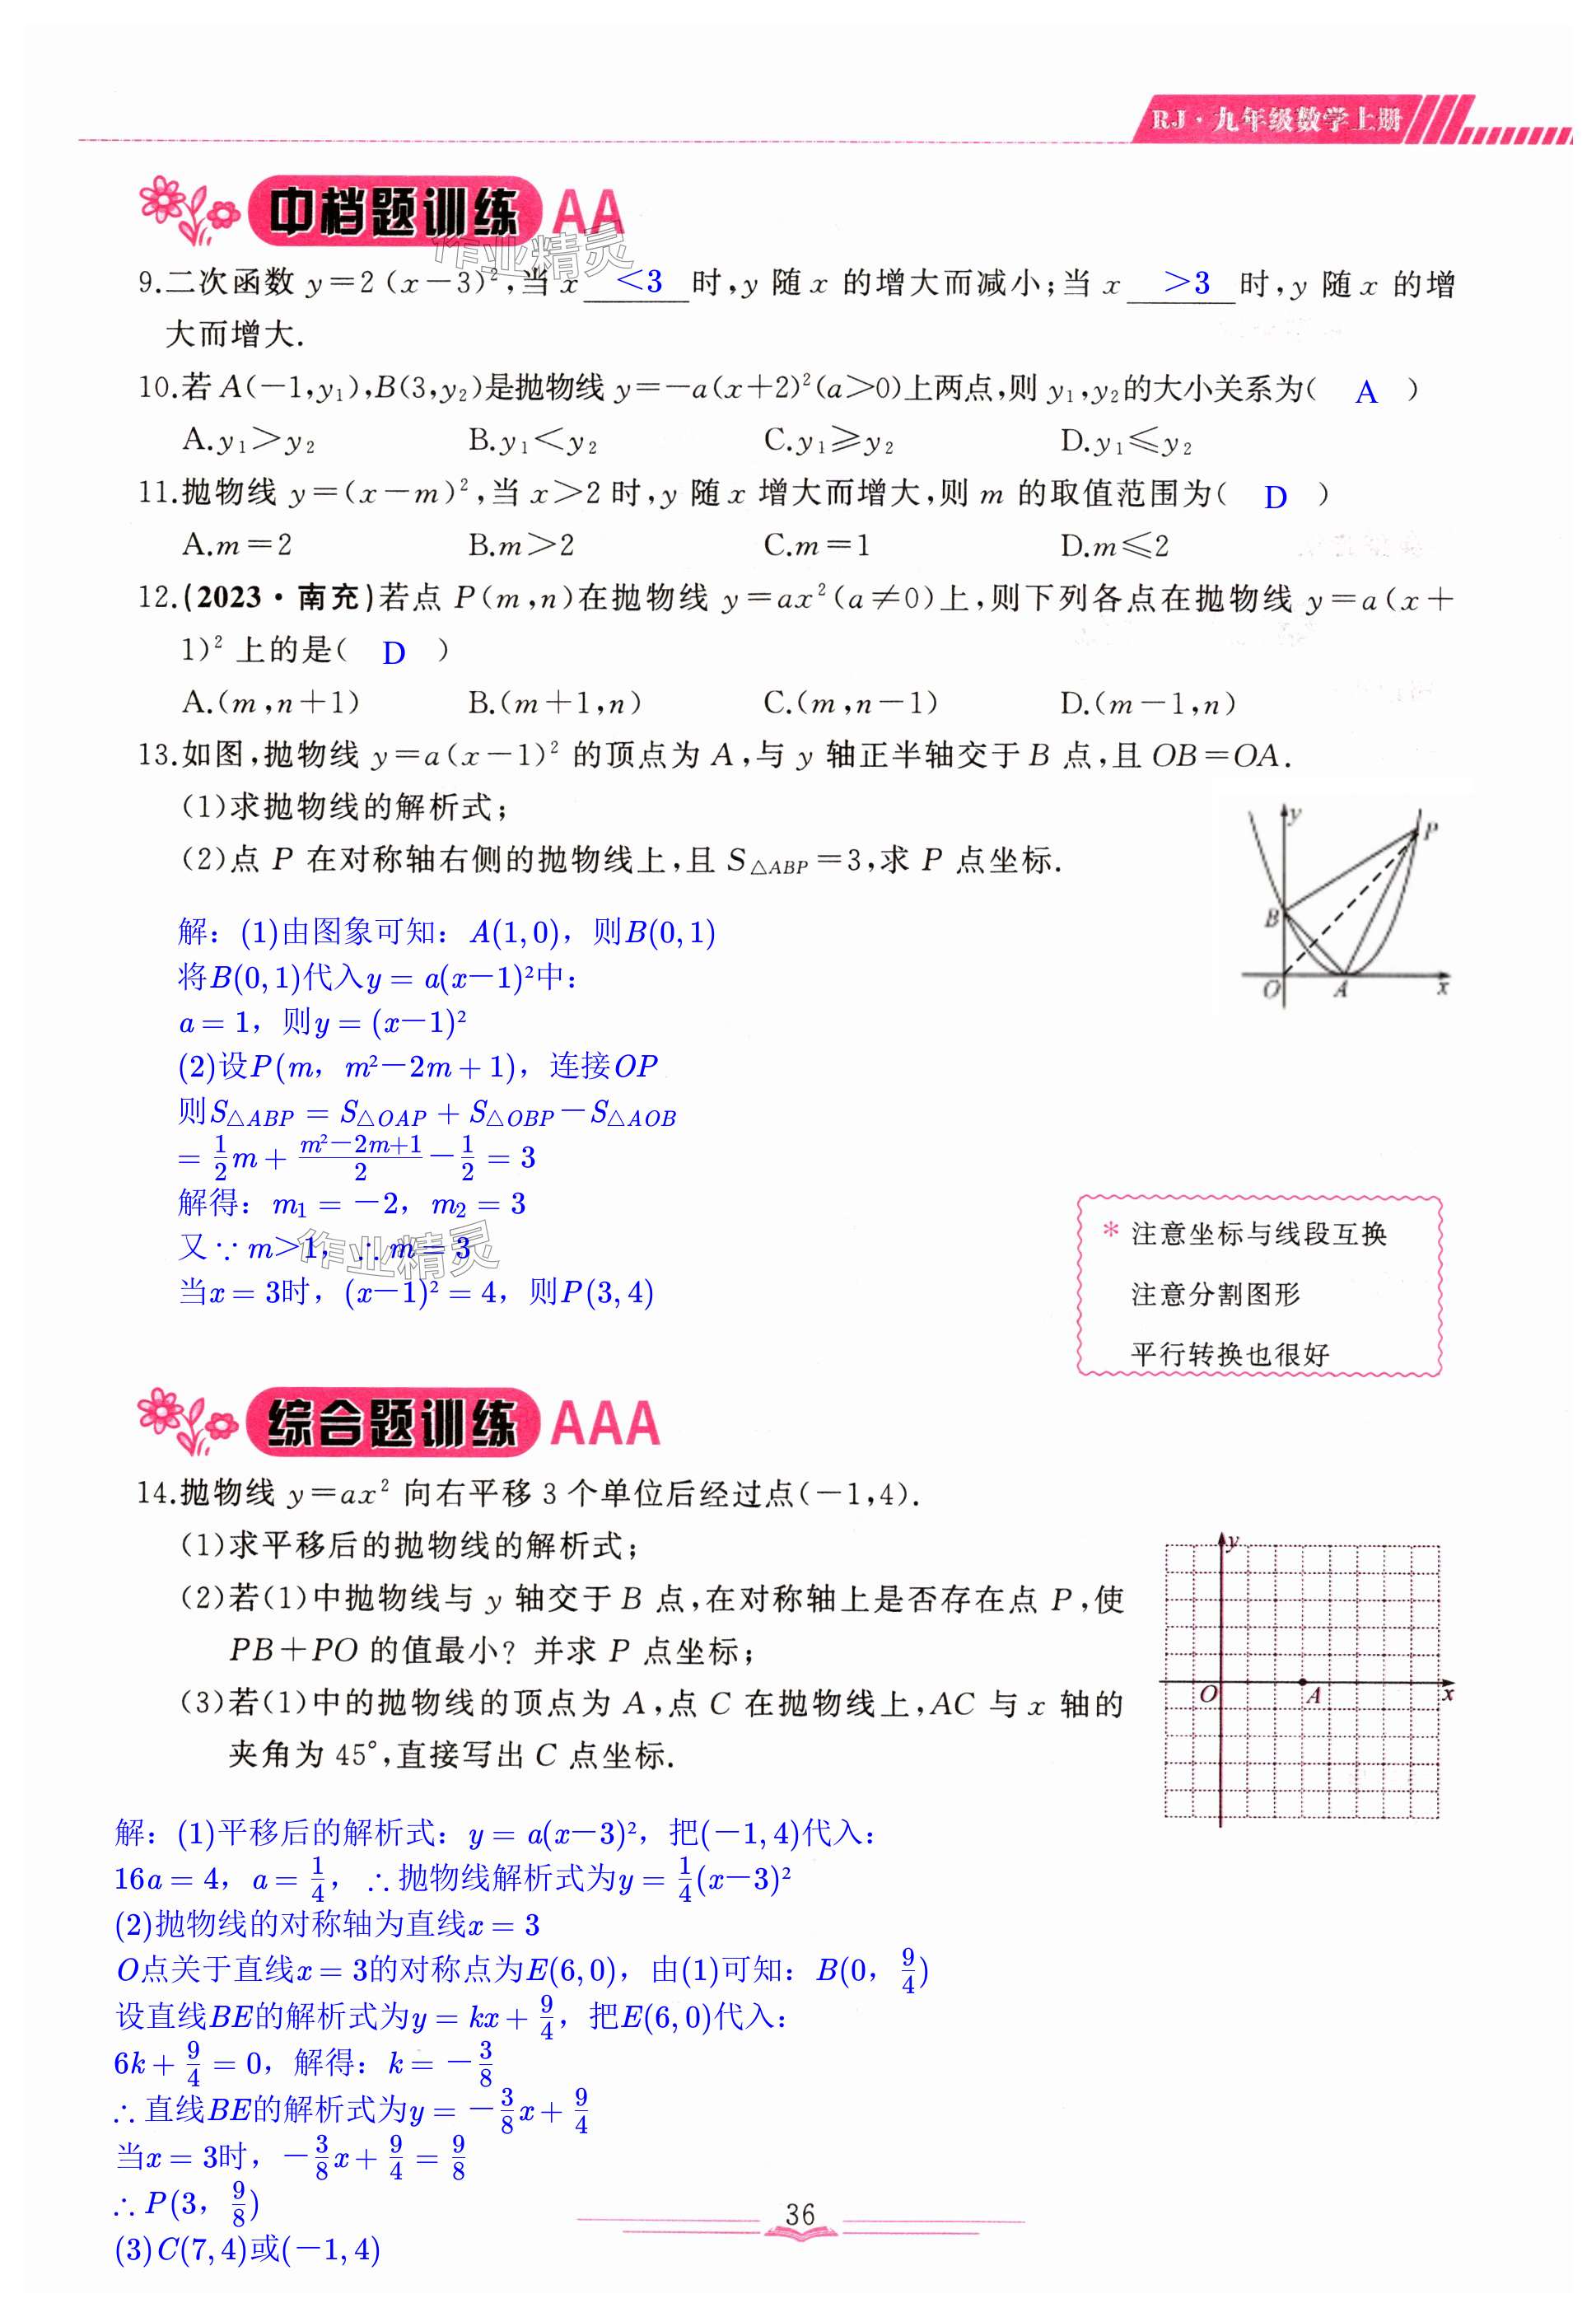 RJ·九年级数学上册
中档题训练 AA
9.二次函数 y=2(x-3)²,当 x <3 时,y 随 x 的增大而减小;当 x >3 时,y 随 x 的增
大而增大.
10.若 A(-1,y₁),B(3,y₂)是抛物线 y=-a(x+2)²(a>0)上两点,则 y₁,y₂的大小关系为( A )
A.y₁>y₂ B.y₁<y₂ C.y₁≥y₂ D.y₁≤y₂
11.抛物线 y=(x-m)²,当 x>2 时,y 随 x 增大而增大,则 m 的取值范围为( D )
A.m=2 B.m>2 C.m=1 D.m≤2
12.(2023·南充)若点 P(m,n)在抛物线 y=ax²(a≠0)上,则下列各点在抛物线 y=a(x+
1)² 上的是( D )
A.(m,n+1) B.(m+1,n) C.(m,n-1) D.(m-1,n)
13.如图,抛物线 y=a(x-1)² 的顶点为 A,与 y 轴正半轴交于 B 点,且 OB=OA.
(1)求抛物线的解析式;
(2)点 P 在对称轴右侧的抛物线上,且 S△ABP=3,求 P 点坐标.
y
P
B
O A x
解：(1)由图象可知：A(1,0)，则B(0,1)
将B(0,1)代入y=a(x-1)²中：
a=1，则y=(x-1)²
(2)设P(m，m²-2m+1)，连接OP
则S△ABP=S△OAP+S△OBP-S△AOB
=1/2m+(m²-2m+1)/2-1/2=3
解得：m₁=-2，m₂=3
又∵m>1，∴m=3
当x=3时，(x-1)²=4，则P(3,4)
作业精灵
作业精灵
*注意坐标与线段互换
注意分割图形
平行转换也很好
综合题训练 AAA
14.抛物线 y=ax² 向右平移 3 个单位后经过点(-1,4).
(1)求平移后的抛物线的解析式;
(2)若(1)中抛物线与 y 轴交于 B 点,在对称轴上是否存在点 P,使
PB+PO 的值最小? 并求 P 点坐标;
(3)若(1)中的抛物线的顶点为 A,点 C 在抛物线上,AC 与 x 轴的
夹角为 45°,直接写出 C 点坐标.
y
O A x
解：(1)平移后的解析式：y=a(x-3)²，把(-1,4)代入：
16a=4，a=1/4，∴抛物线解析式为y=1/4(x-3)²
(2)抛物线的对称轴为直线x=3
O点关于直线x=3的对称点为E(6,0)，由(1)可知：B(0，9/4)
设直线BE的解析式为y=kx+9/4，把E(6,0)代入：
6k+9/4=0，解得：k=-3/8
∴直线BE的解析式为y=-3/8x+9/4
当x=3时，-3/8x+9/4=9/8
∴P(3，9/8)
(3)C(7,4)或(-1,4)
36